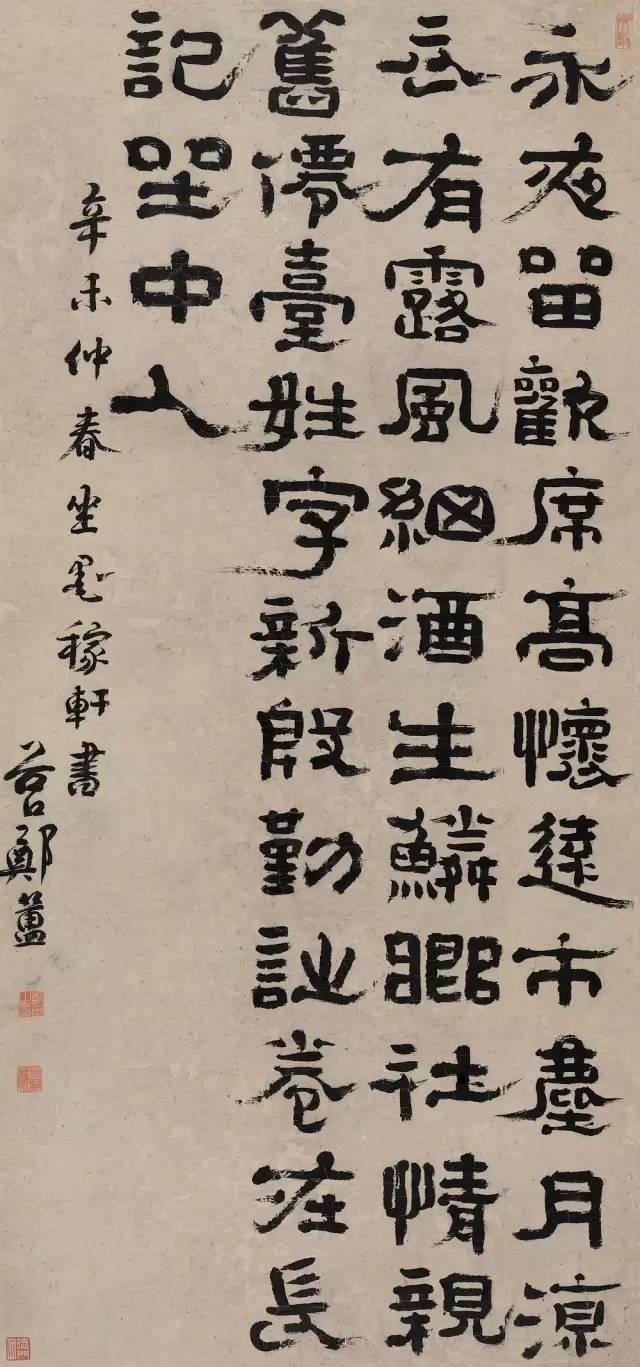 永夜留歡席高懷遠市塵月涼
有露風細酒生鱗鄉社情親
舊僊臺姓字新殷勤詩卷在長
記坐中人
辛未仲春坐墨稼軒書
谷口鄭簠